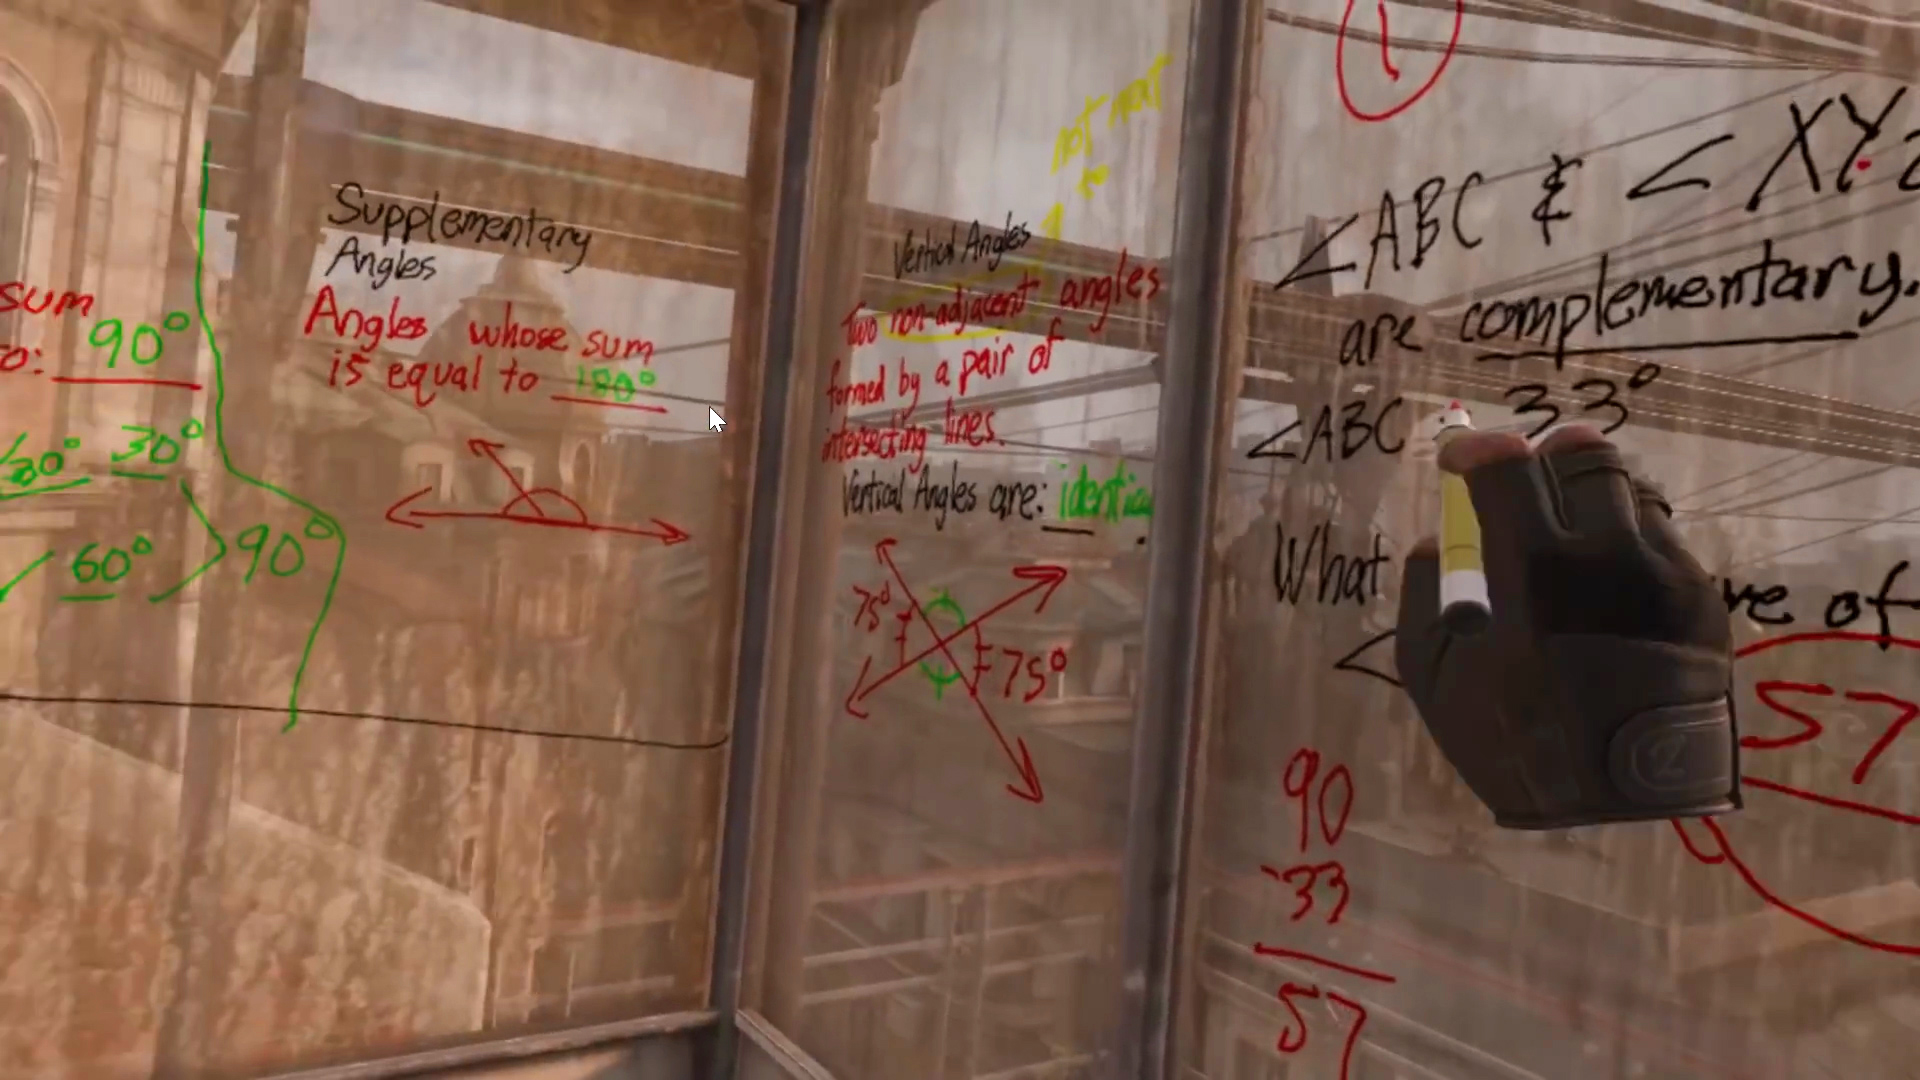 sum
o: 90°
30° 30°
60° 90°
Supplementary
Angles
Angles whose sum
is equal to 180°
not next
to
Vertical Angles
Two non-adjacent angles
formed by a pair of
intersecting lines.
Vertical Angles are: identica
75°
75°
1
<ABC & <XYZ
are complementary.
<ABC 33°
What ve of
<
57
90
-33
57